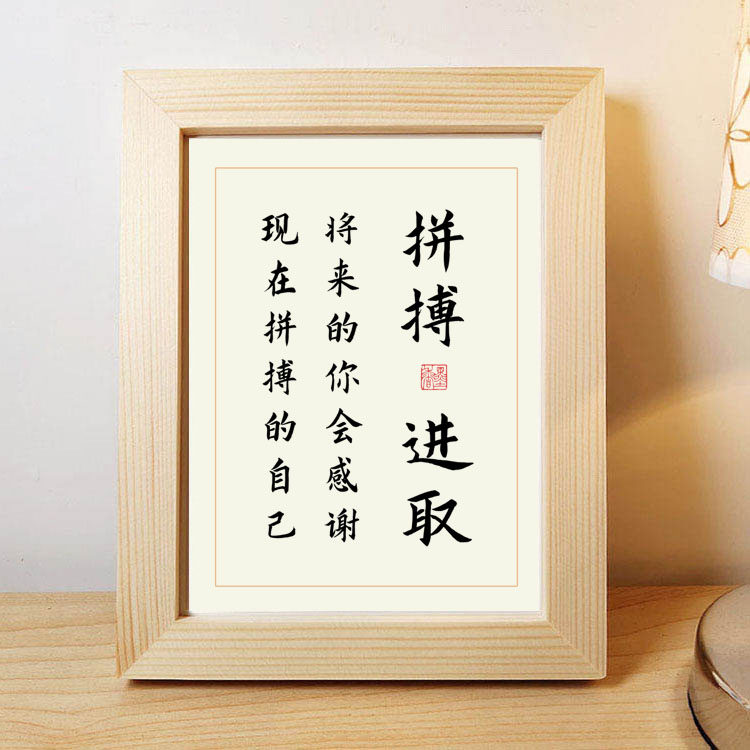 拼搏进取
将来的你会感谢
现在拼搏的自己